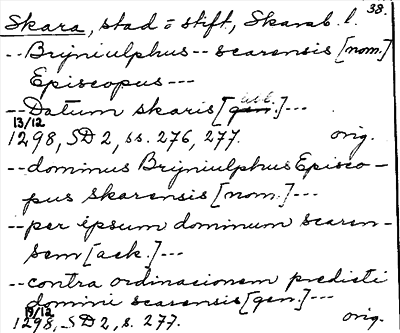 38.
Skara, stad o stift, Skarab. l.
-- Brijniulphus -- scarensis [nom.]
Episcopus ---
-- Datum skaris [gen. abl.] ---
13/12
1298, SD 2, ss. 276, 277. orig.
-- dominus Brijniulphus Episco-
pus skarensis [nom.] ---
-- per ipsum dominum scaren-
sem [ack.] ---
-- contra ordinacionem predicti
domini scarensis [gen.] ---
13/12
1298, SD 2, s. 277. orig.